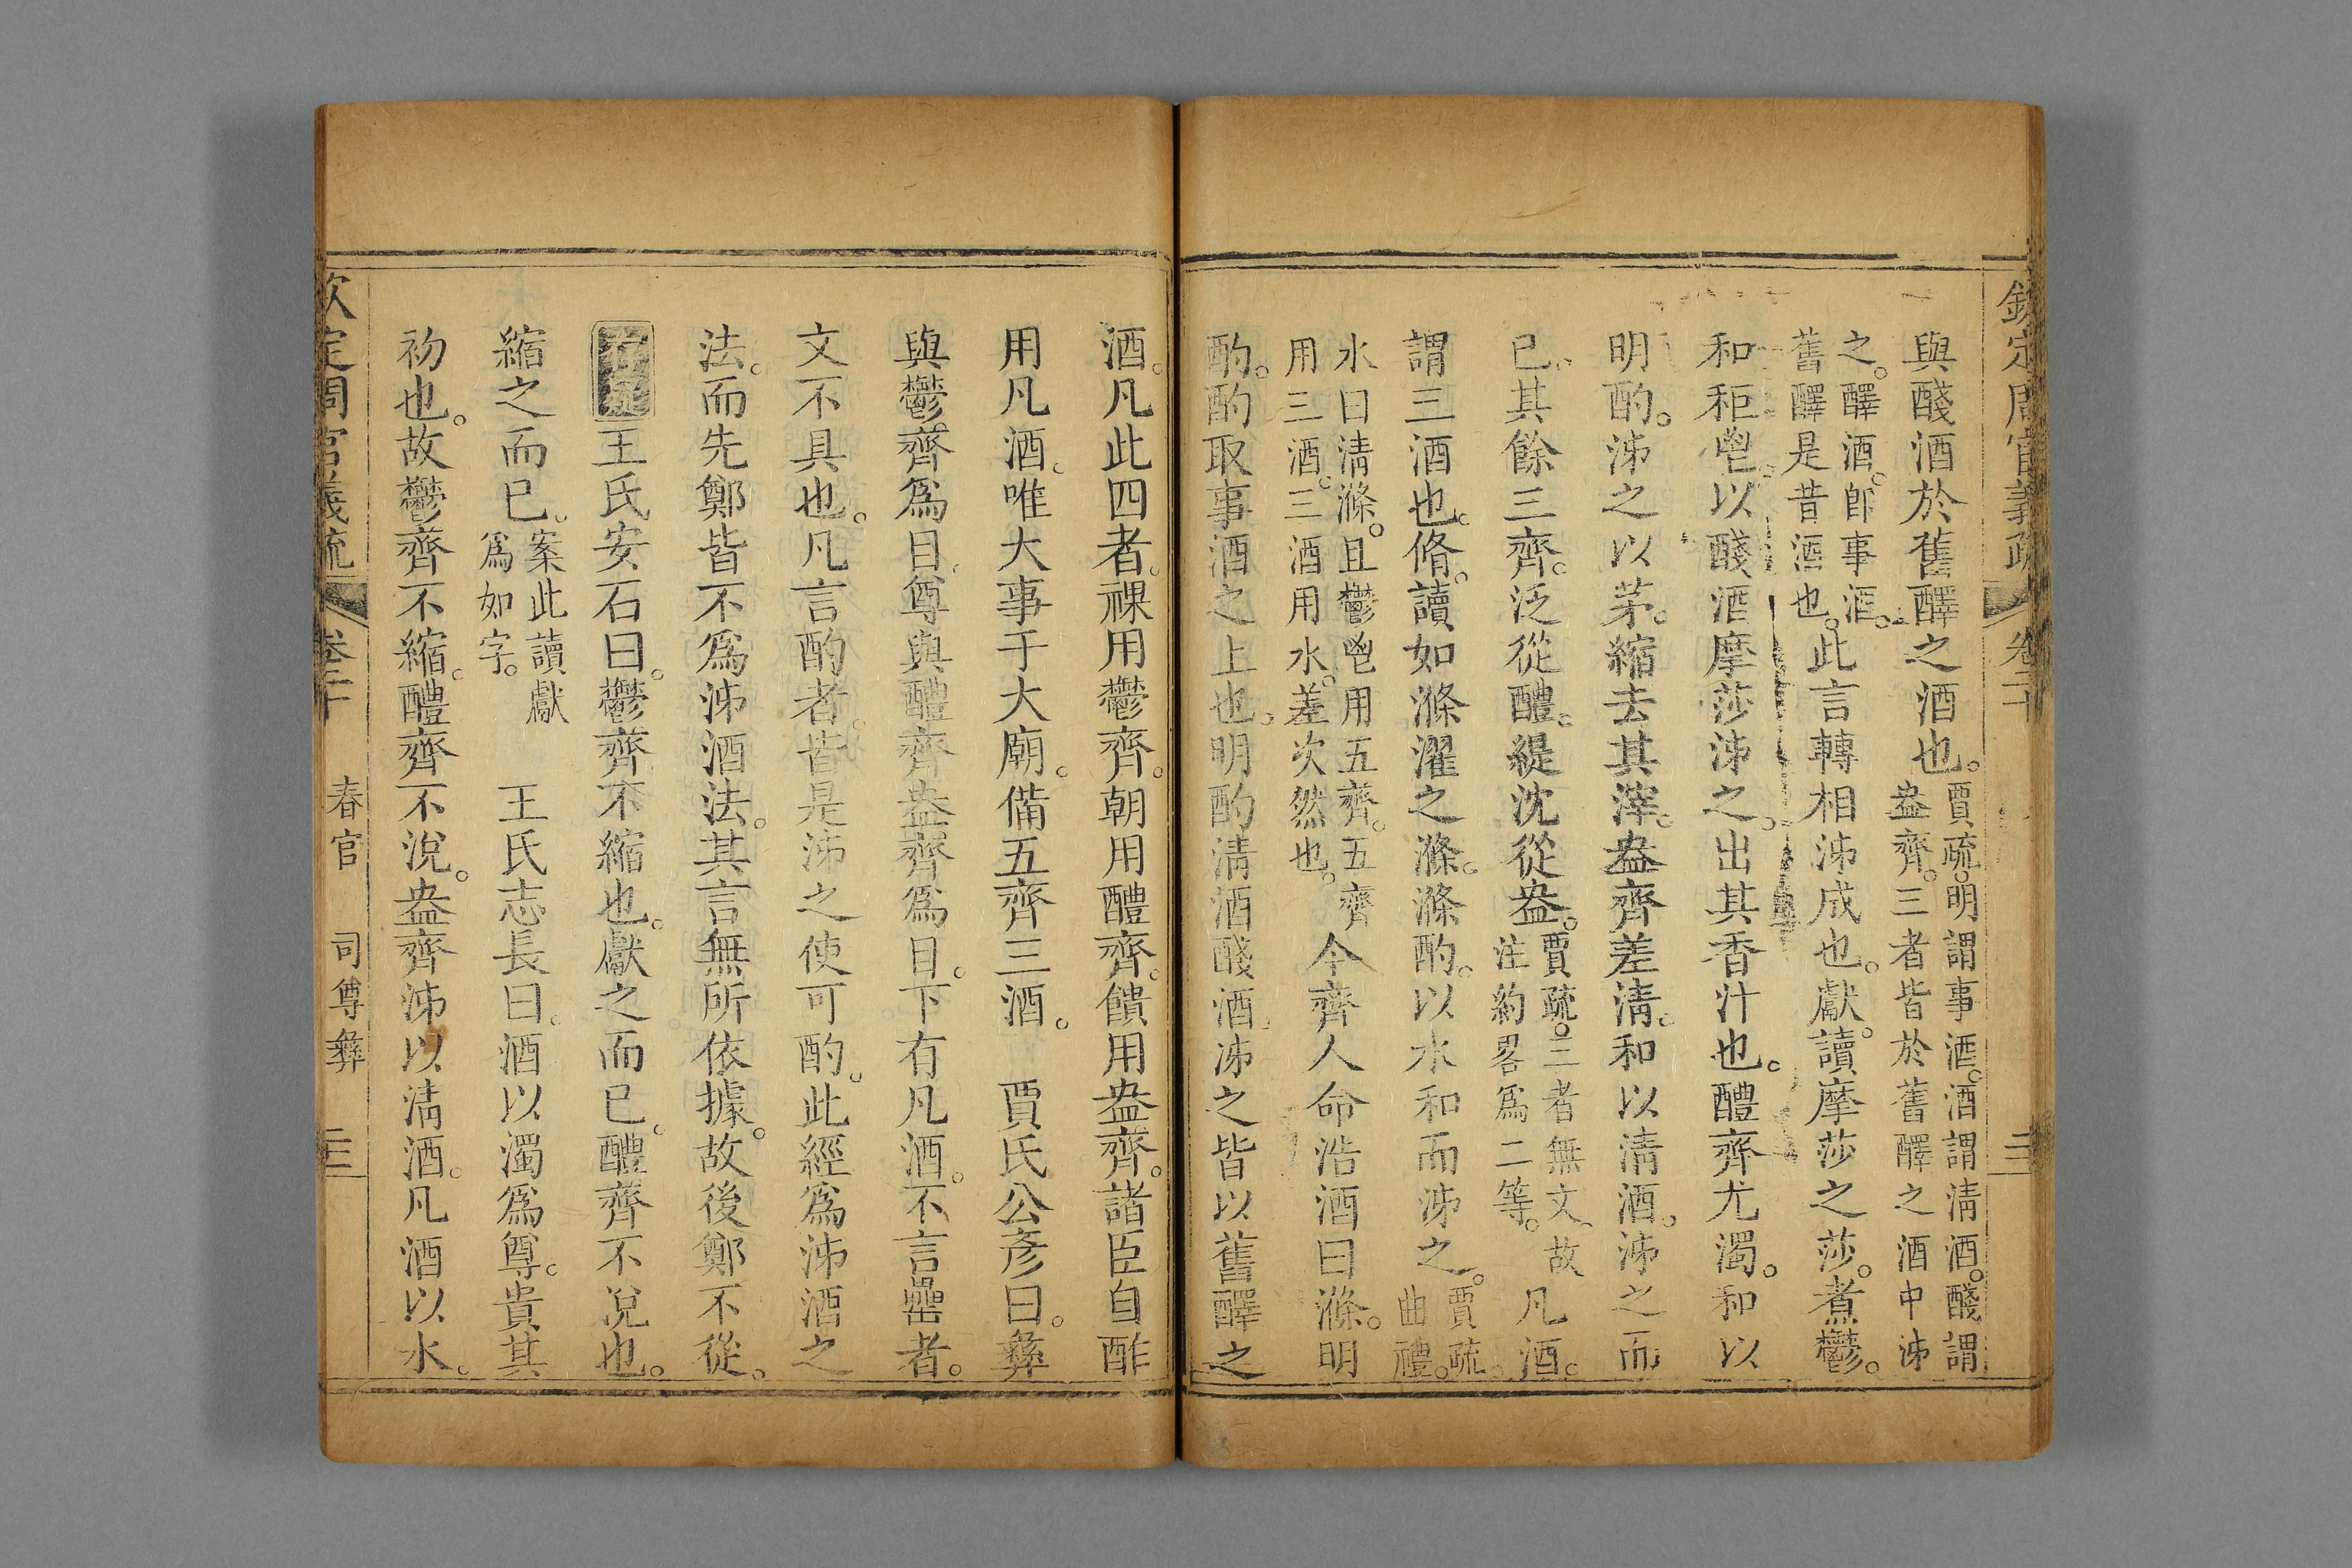 欽定周官義疏 卷二十 三
與醆酒於舊醳之酒也。賈疏。明謂事酒。酒謂清酒。醆謂盎齊。三者皆於舊醳之酒中泲
之。醳酒。卽事酒。舊醳是昔酒也。此言轉相泲成也。獻。讀摩莎之莎。煮鬱。
和秬鬯。以醆酒摩莎泲之。出其香汁也。醴齊尤濁。和以
明酌。泲之以茅。縮去其滓。盎齊差清。和以清酒。泲之而
已。其餘三齊。泛從醴。緹沈從盎。賈疏。三者無文、故注約畧爲二等。凡酒。
謂三酒也。脩。讀如滌濯之滌。滌酌。以水和而泲之。賈疏。曲禮。
水曰清滌。且鬱鬯用五齊。五齊用三酒。三酒用水。差次然也。今齊人命浩酒曰滌。明
酌。酌取事酒之上也。明酌清酒醆酒。泲之皆以舊醳之
酒。凡此四者。祼用鬱齊。朝用醴齊。饋用盎齊。諸臣自酢
用凡酒。唯大事于大廟。備五齊三酒。 賈氏公彥曰。彝
與鬱齊爲目。尊與醴齊盎齊爲目。下有凡酒。不言罍者。
文不具也。凡言酌者。皆是泲之使可酌。此經爲泲酒之
法。而先鄭皆不爲泲酒法。其言無所依據。故後鄭不從。
王氏安石曰。鬱齊不縮也。獻之而已。醴齊不涚也。
縮之而已。案此讀獻爲如字。 王氏志長曰。酒以濁爲尊。貴其
初也。故鬱齊不縮。醴齊不涚。盎齊泲以清酒。凡酒以水。
欽定周官義疏 卷二十 春官 司尊彝 三